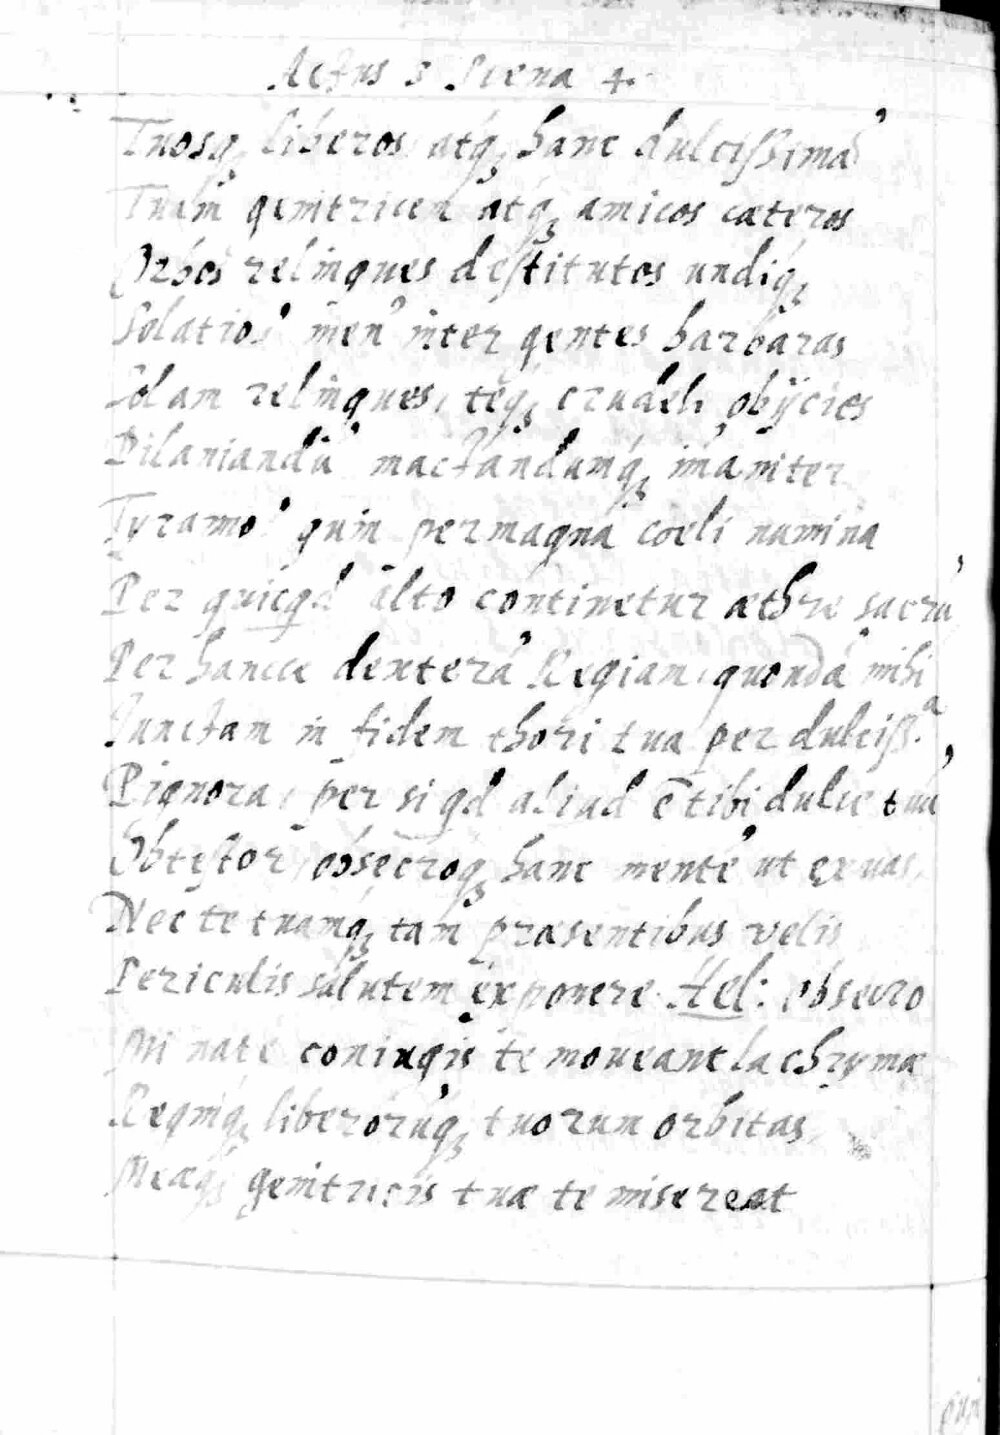 Actus 3 Scena 4.
Tuosq; liberos atq; hanc dulcissimā
Tuam genitricem atq; amicos cæteros
Orbos relinques destitutos undiq;
Solatio? men' inter gentes barbaras
Solam relinques, teq; crudeli obijcies
Dilaniandū mactandumq; im̄aniter
Tyranno? quin per magna coeli numina
Per quicqd alto continetur æthre sacrū
Per hance dexterā Regiam, quondā mihi
Iunctam in fidem thori tua per dulciss.ᵃ
Pignora, per si qd aliud ē tibi dulce tuū
Obtestor, obsecroq; hanc mentē ut exuas,
Nec te tuamq; tam præsentibus velis
Periculis salutem exponere. Hel: obsecro
Mi nate coniugis te moueant lachrymæ
Regniq; liberorūq; tuorum orbitas,
Meæq; genitricis tuæ te misereat